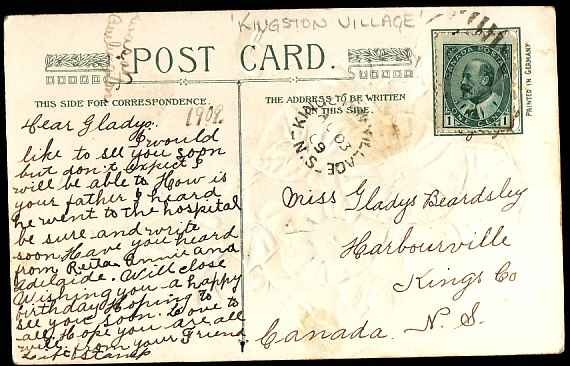 'KINGSTON VILLAGE'
POST CARD.
THIS SIDE FOR CORRESPONDENCE.
1909
Dear Gladys.
I would
like to see you soon
but don't expect I
will be able to How is
your father I heard
he went to the hospital
be sure and write
soon Have you heard
from Reta Annie and
Adelaide. Will close
Wishing you a happy
birthday Hoping to
see you soon. Love to
all Hope you are all
well. from your Friend
THE ADDRESS TO BE WRITTEN
ON THIS SIDE.
VILLAGE - N.S.
CANADA POSTAGE
1
PRINTED IN GERMANY
Miss Gladys Beardsley
Harbourville
Kings Co
N. S.
Canada